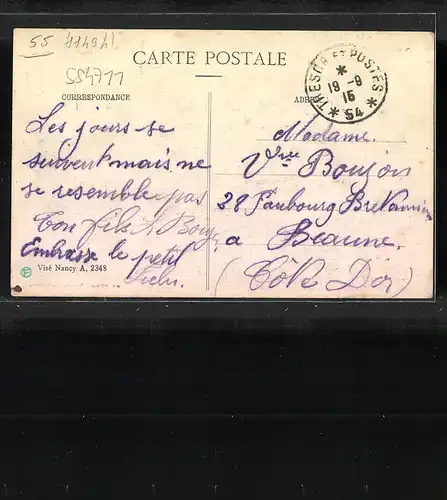 55
411494L
554711
CARTE POSTALE
CORRESPONDANCE
TRESOR ET POSTES
* 19 -9 15 *
* 54 *
Les jours se
suivent mais ne
se resemble pas
Ton fils A. Bouj
Embrasse le petit
Visé Nancy A. 2348
Madame
Vve Boujon
28 Faubourg Bretonnière
a Beaune.
(Côte D'or)